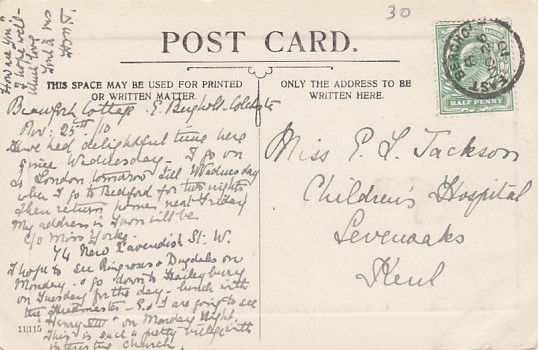 30
"How are you"
I hope well-
Much love
POST CARD.
THIS SPACE MAY BE USED FOR PRINTED
OR WRITTEN MATTER.
ONLY THE ADDRESS TO BE
WRITTEN HERE.
HALF PENNY
EAST BERGHOLT
Beaufort Cottage - E. Bergholt. Colchester
Nov: 25th /10
Have had delightful time here
since Wednesday - I go on
to London tomorrow till Wednesday
when I go to Bedford for two nights
then return home next Friday
My address in Town will be
c/o Miss Yorke
74 New Cavendish St. W.
I hope to see Ringroses & Dugdales on
Monday & go down to Haileybury
on Tuesday for the day - lunch with
the Headmaster - I are going to see
Henry VIII on Monday night.
This is such a pretty village with
interesting church.
11|115
Miss P. L. Jackson
Children's Hospital
Sevenoaks
Kent